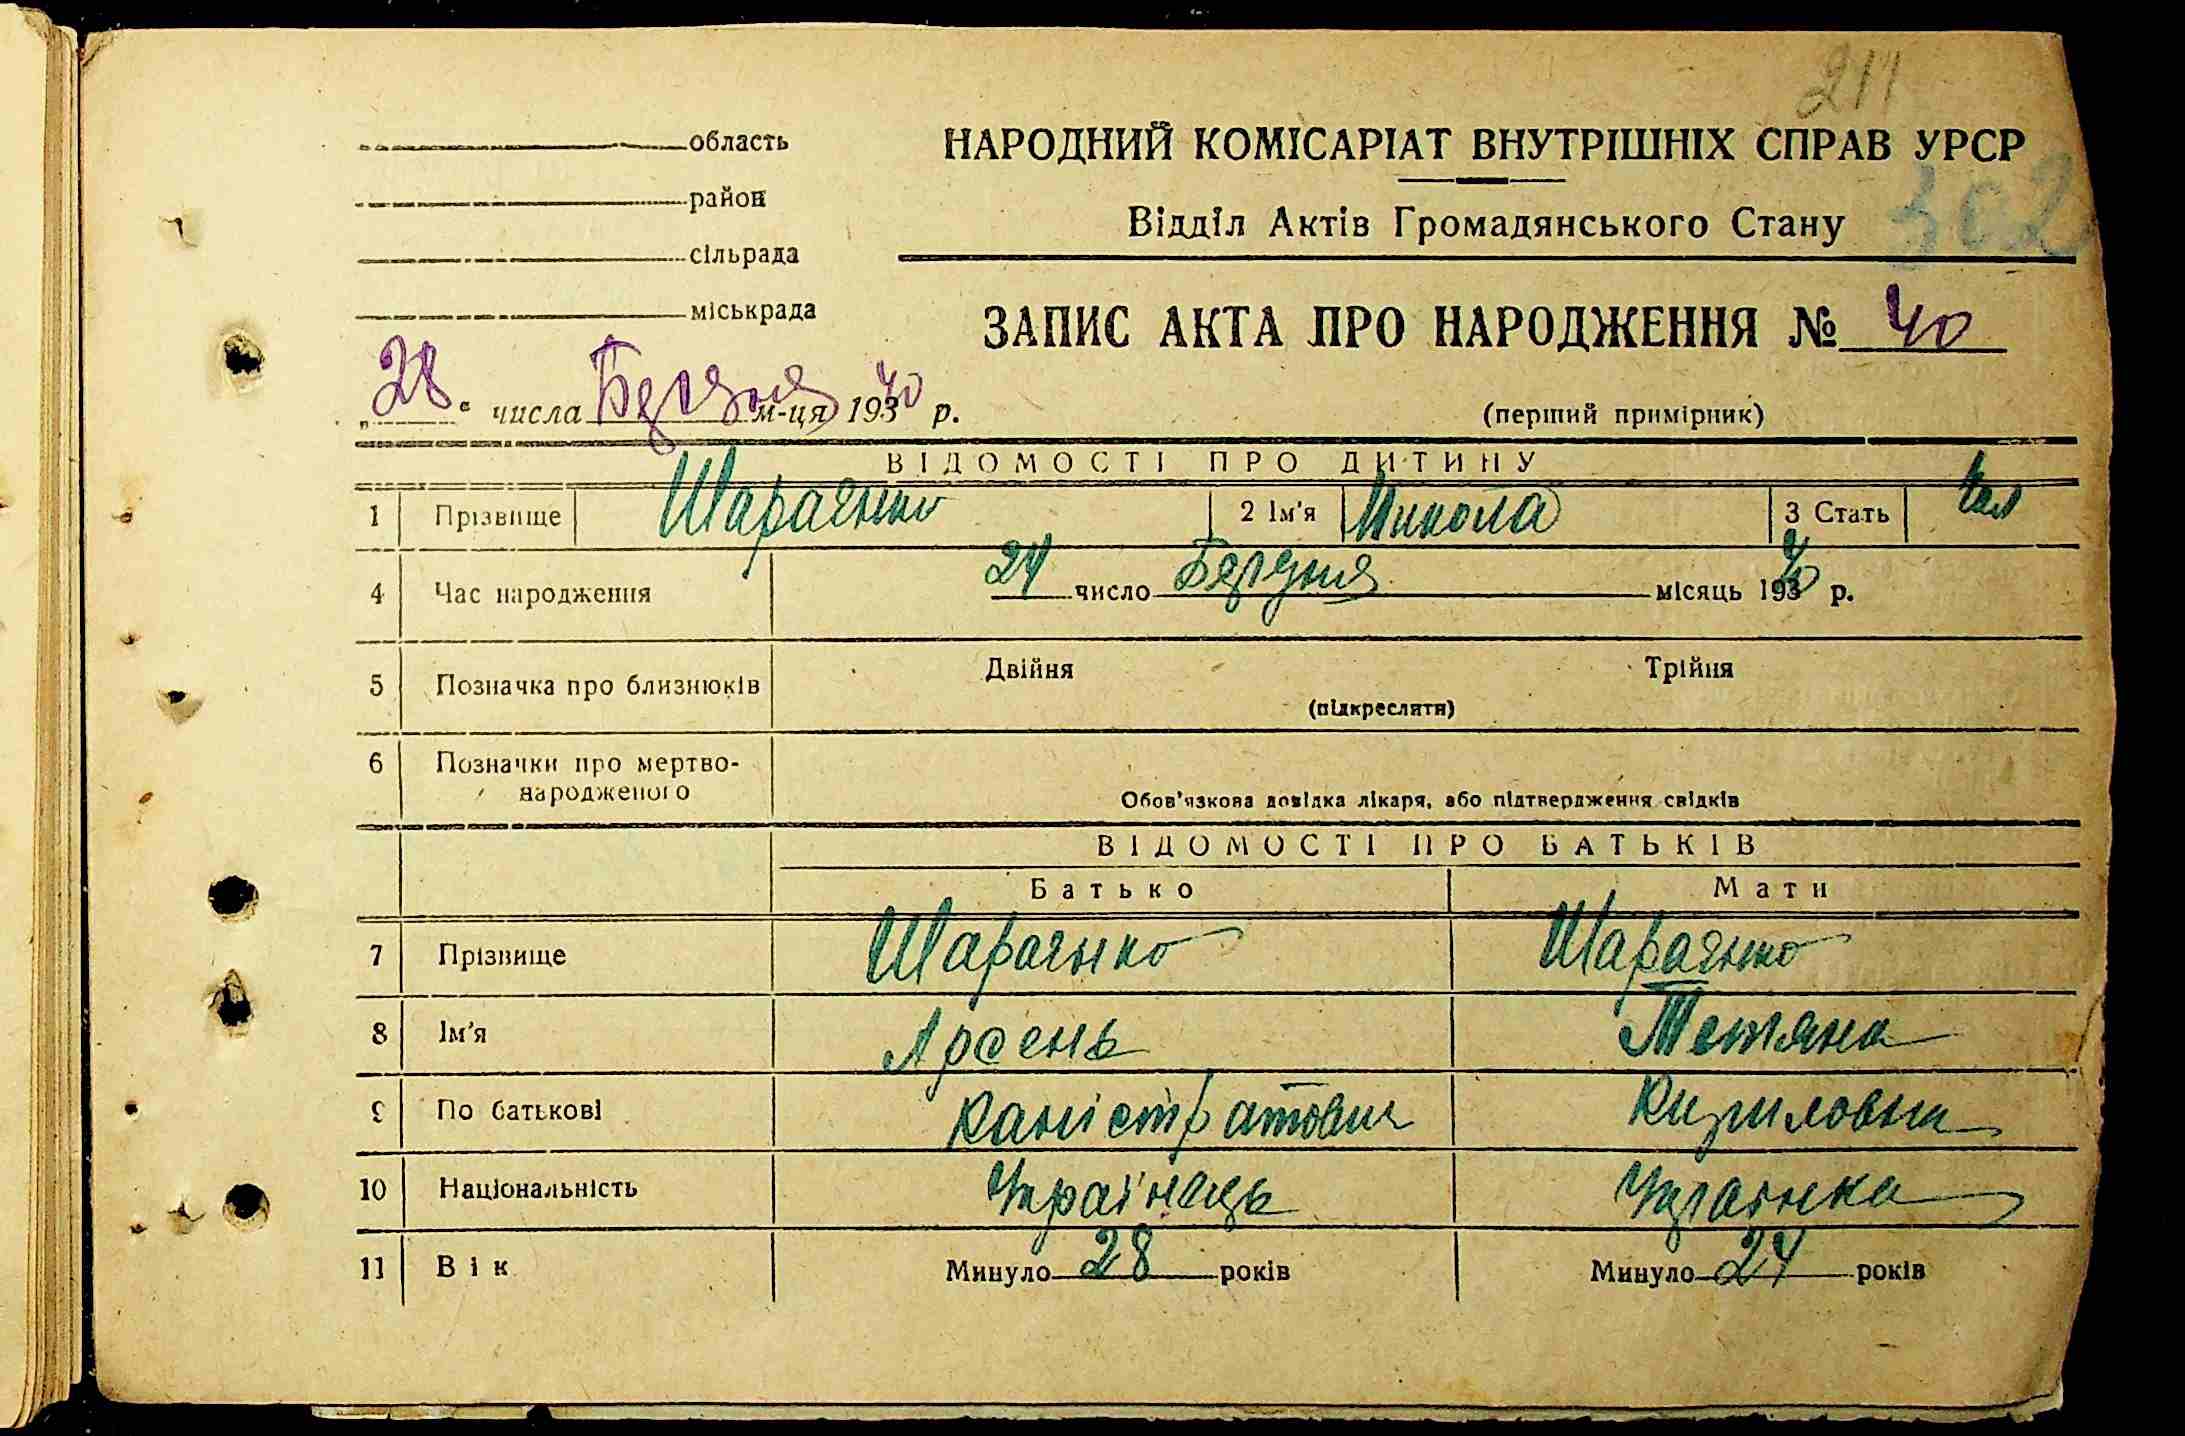 211
область
НАРОДНИЙ КОМІСАРІАТ ВНУТРІШНІХ СПРАВ УРСР
302
район
Відділ Актів Громадянського Стану
сільрада
міськрада
ЗАПИС АКТА ПРО НАРОДЖЕННЯ № 40
„28“ числа Березня м-ця 1940 р.
(перший примірник)
ВІДОМОСТІ ПРО ДИТИНУ
1 Прізвище 2 Ім'я Микола 3 Стать Чол
4 Час народження 24 число Березня місяць 1940 р.
5 Позначка про близнюків Двійня Трійня
(підкреслити)
6 Позначки про мертво-
народженого
Обов'язкова довідка лікаря, або підтвердження свідків
ВІДОМОСТІ ПРО БАТЬКІВ
Батько Мати
7 Прізвище
8 Ім'я Арсень Тетяна
9 По батькові Каністратович Кириловна
10 Національність Українець Українка
11 Вік Минуло 28 років Минуло 24 років